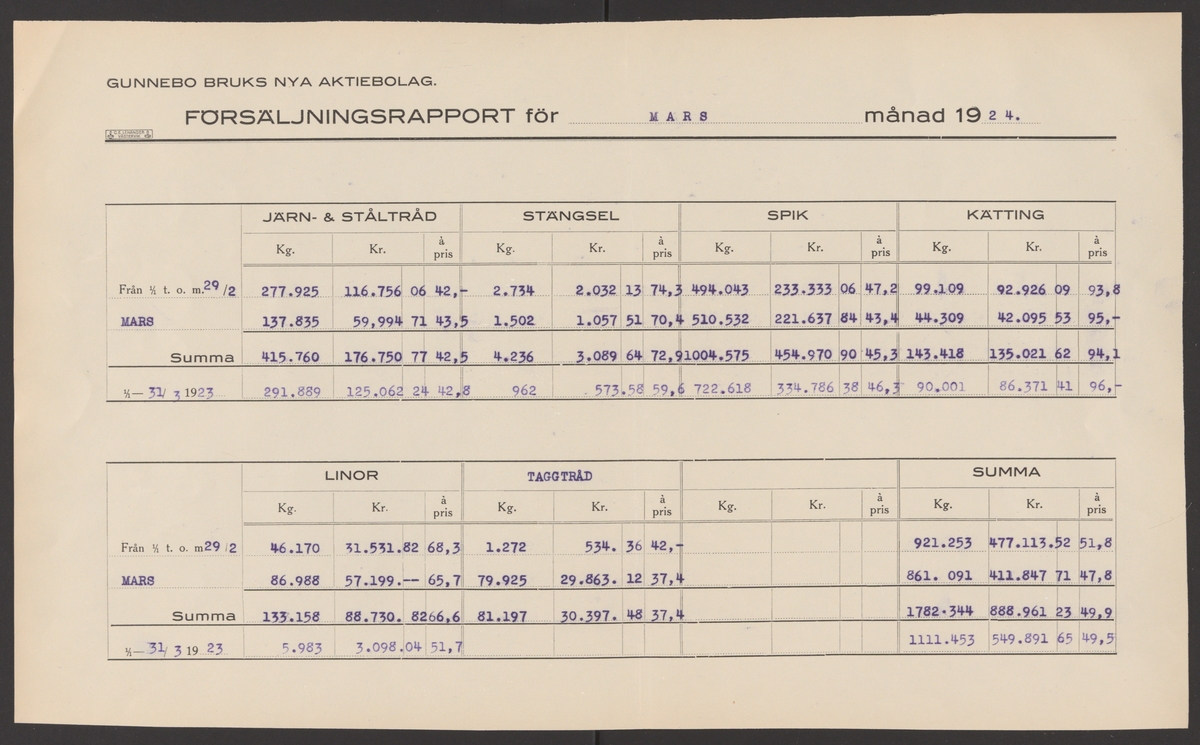 GUNNEBO BRUKS NYA AKTIEBOLAG.
FÖRSÄLJNINGSRAPPORT för MARS månad 1924.
JÄRN- & STÅLTRÅD STÄNGSEL SPIK KÄTTING
Kg. Kr. à pris Kg. Kr. à pris Kg. Kr. à pris Kg. Kr. à pris
Från 1/1 t. o. m. 29/2 277.925 116.756 06 42,- 2.734 2.032 13 74,3 494.043 233.333 06 47,2 99.109 92.926 09 93,8
MARS 137.835 59,994 71 43,5 1.502 1.057 51 70,4 510.532 221.637 84 43,4 44.309 42.095 53 95,-
Summa 415.760 176.750 77 42,5 4.236 3.089 64 72,9 1004.575 454.970 90 45,3 143.418 135.021 62 94,1
1/1— 31/3 1923 291.889 125.062 24 42,8 962 573.58 59,6 722.618 334.786 38 46,3 90.001 86.371 41 96,-
LINOR TAGGTRÅD SUMMA
Kg. Kr. à pris Kg. Kr. à pris Kg. Kr. à pris Kg. Kr. à pris
Från 1/1 t. o. m 29/2 46.170 31.531.82 68,3 1.272 534. 36 42,- 921.253 477.113.52 51,8
MARS 86.988 57.199.-- 65,7 79.925 29.863. 12 37,4 861. 091 411.847 71 47,8
Summa 133.158 88.730. 82 66,6 81.197 30.397. 48 37,4 1782.344 888.961 23 49,9
1/1— 31/3 1923 5.983 3.098.04 51,7 1111.453 549.891 65 49,5